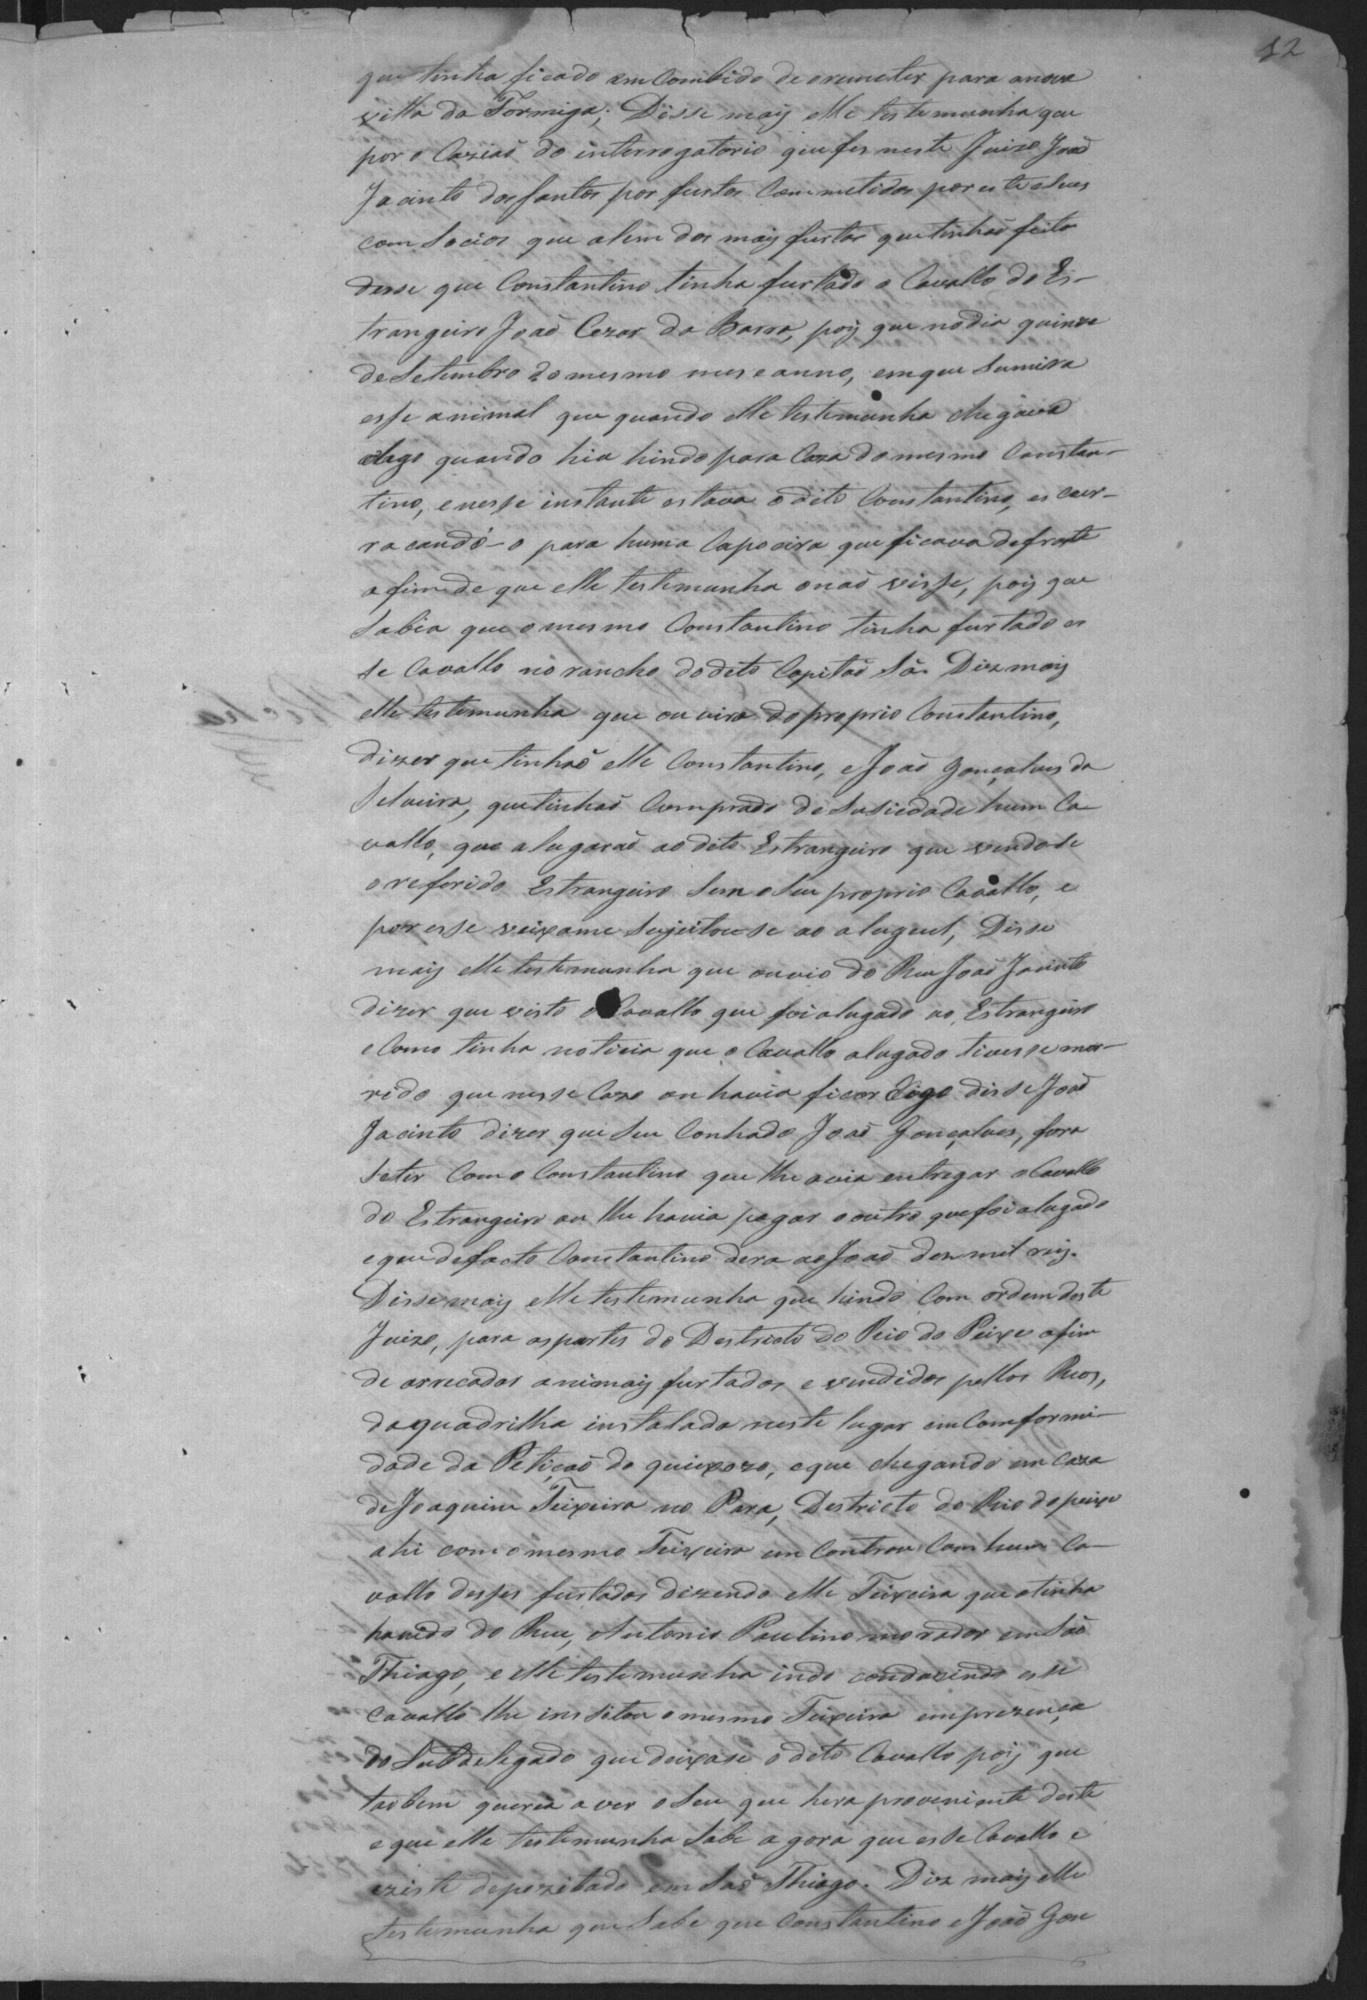 12
que tinha ficado emcombido de o remeter para anova
villa da Formiga; Disse mais elle testemunha que
por o Caziaõ do interrogatorio que fes neste Juizo Joaõ
Jacinto dos Santos por furtos Commetidos por este e Seus
com Socios que alem dos mais furtos que tinhaõ feito
disse que Constantino tinha furtado o Cavallo do Es-
trangeiro Joaõ Cezar da Barra, pois que no dia quinze
de Setembro do mesmo mes e anno, em que Sumira
esse animal que quando elle testemunha chegava
digo quando hia hindo para Caza do mesmo Constan-
tino, e nesse instante estava o dito Constantino, escur-
racando-o para huma Capoeira que ficava defronte
afim de que elle testemunha o naõ visse, pois que
Sabia que o mesmo Constantino tinha furtado es
se Cavallo no rancho do dito Capitaõ Sá. Diz mais
elle testemunha que ouvira do proprio Constantino,
dizer que tinhaõ elle Constantino, e Joaõ Gonçalves da
Silveira, que tinhaõ Comprado de Susiedade hum Ca-
vallo, que alugaraõ ao dito Estrangeiro que vendose
o referido Estrangeiro Sem o Seu proprio Cavallo, e
por esse veixame Sujeitou-se ao aluguel, Disse
mais elle testemunha que ouvio do Reu Joaõ Jacinto
dizer que visto o Cavallo que foi alugado ao Estrangeiro
e Como tinha noticia que o Cavallo alugado tivesse mor-
rido que nesse Cazo on havia ficar Digo disse Joaõ
Jacinto dizer que Seu Conhado Joaõ Gonçalves, fora
Seter Com o Constantino que lhe avia entregar o Cavallo
do Estrangeiro ou lhe havia pagar o outro que foi alugado
e que defacto Constantino dera ao Joaõ des mil reis.
Disse mais elle testemunha que hindo Com ordem deste
Juizo, para as partes do Destricto do Rio do Peixe afim
de arrecadar animais furtados e vendidos pellos Reos,
da quadrilha instalada neste lugar em Comformi-
dade da Petiçaõ do queixozo, e que chegando em Caza
de Joaquim Teixeira no Para, Destricto do Rio do peixe
ahi com o mesmo Teixeira em Controu Com hum Ca-
vallo desses furtados dizendo elle Teixeira que o tinha
havido do Reu, Antonio Paulino morador em Saõ
Thiago, e elle testemunha indo conduzindo esse
Cavallo lhe insistou o mesmo Teixeira em prezença
do Subdelegado que deixase o dito Cavallo pois que
taõbem queria aver o Seu que hera proveniente deste
e que elle testemunha Sabe agora que esse Cavallo e
xiste depozitado em Saõ Thiago. Diz mais elle
testemunha que Sabe que Constantino e Joaõ Gon